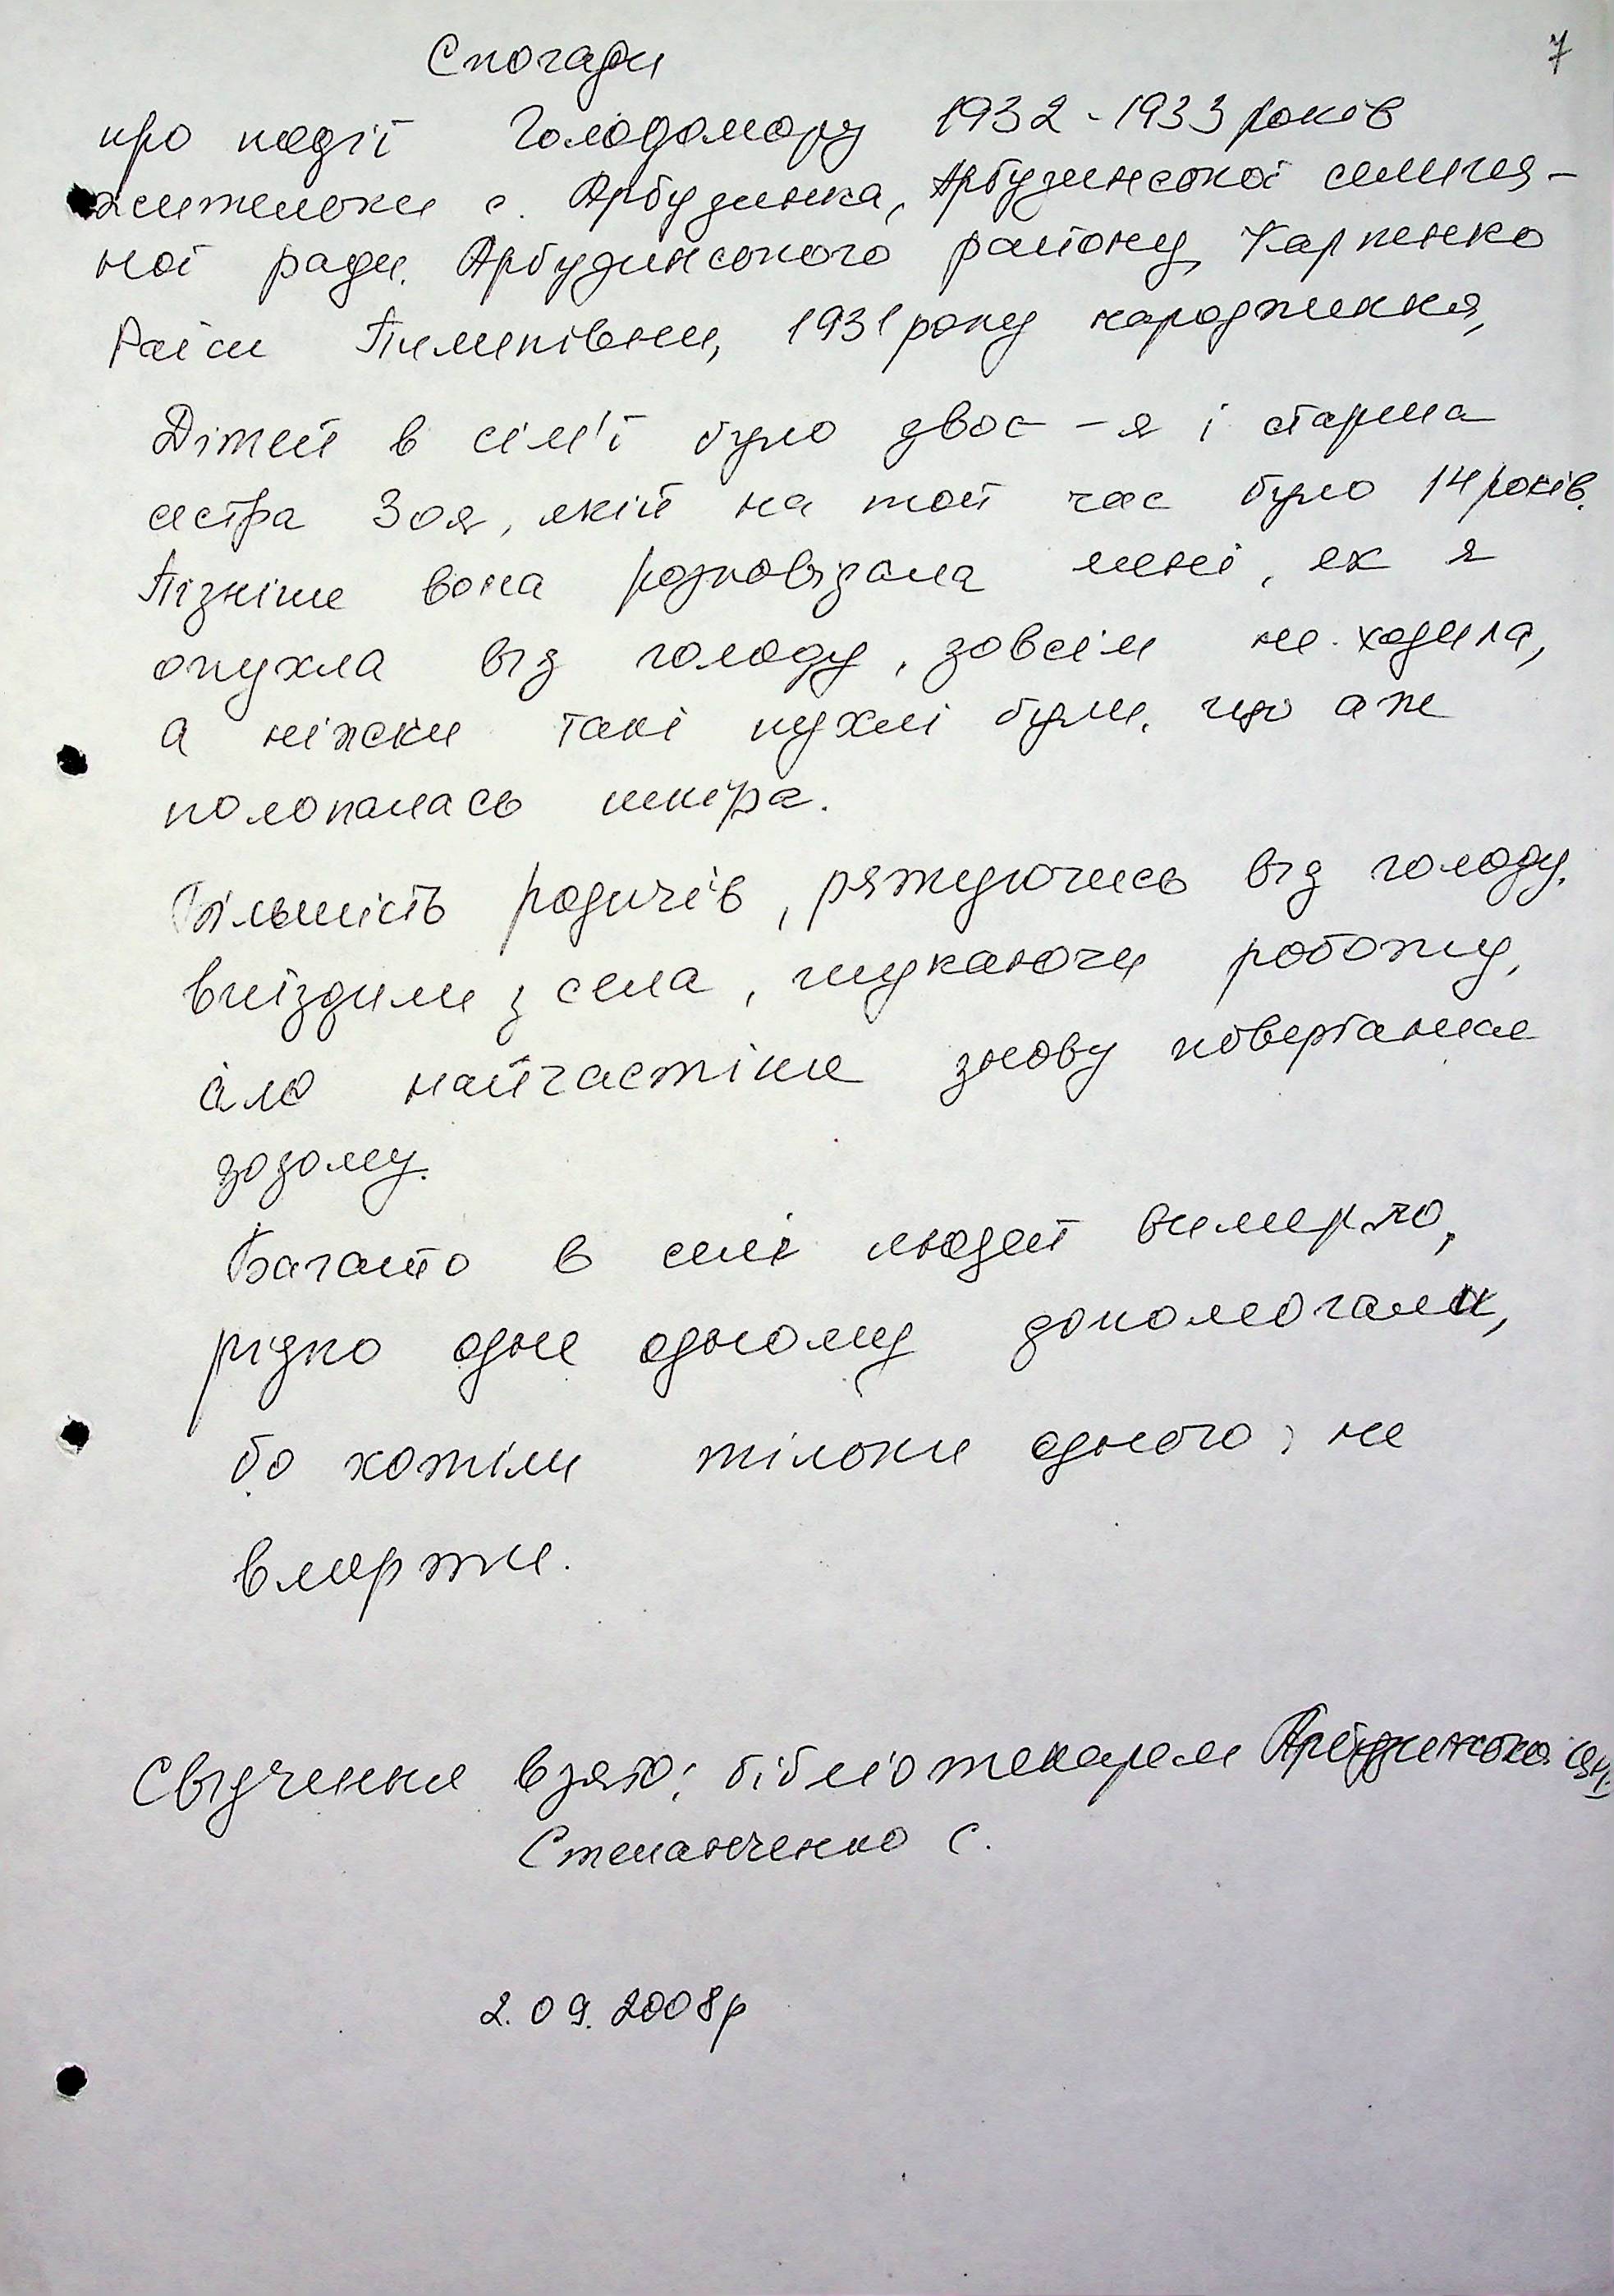 7
Спогади
про події Голодомору 1932-1933 років
жительки с. Арбузинка, Арбузинської селищ-
ної ради, Арбузинського району, Карпенко
Раїси Пилипівни, 1931 року народження,
Дітей в сім'ї було двоє - я і старша
сестра Зоя, якій на той час було 14 років.
Пізніше вона розповідала мені, як я
опухла від голоду, зовсім не ходила,
а ніжки такі пухлі були, що аж
полопалась шкіра.
Більшість родичів, рятуючись від голоду,
виїздили з села, шукаючи роботу,
але найчастіше знову повертались
додому.
Багато в селі людей вимерло,
рідко одне одному допомогали,
бо хотіли тільки одного: не
вмерти.
Свідчення взято: бібліотекарем Арбузинської
Степанченко С.
2.09.2008р